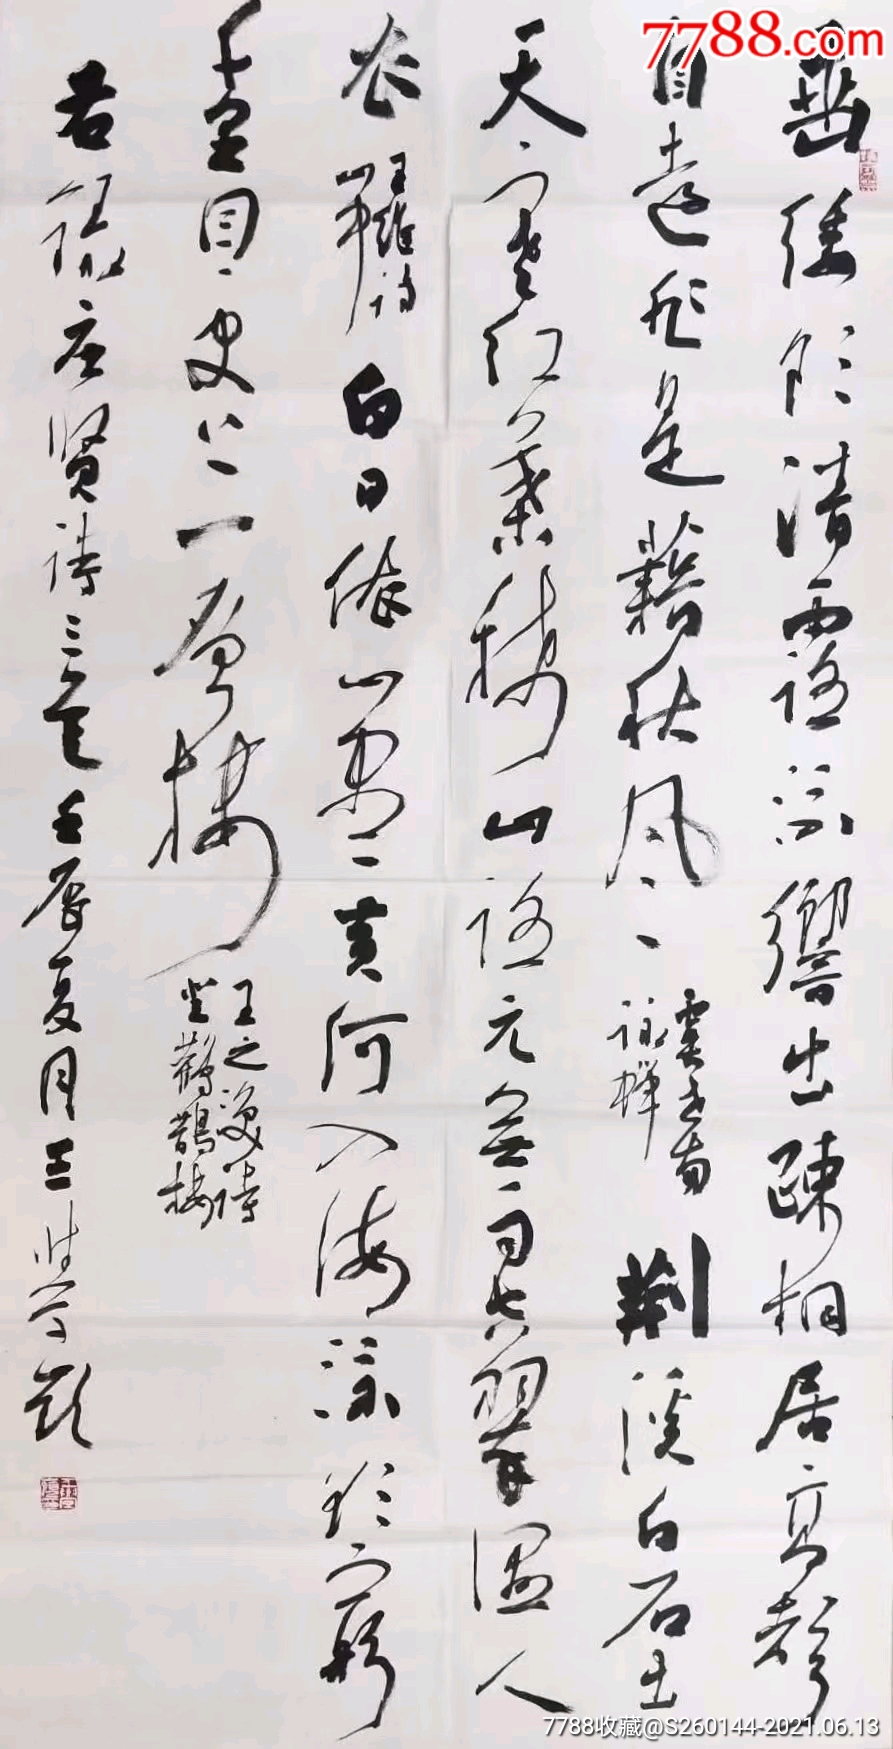 7788.com
垂緌飲清露流響出疎桐居高聲
自遠非是藉秋風
虞世南
詠蟬
荆溪白石出
天寒紅葉稀山路元無雨空翠濕人
衣
王維詩
山中
白日依山盡黄河入海流欲窮
千里目更上一層樓
王之渙詩
登鸛鵲樓
右録唐贤诗三首壬辰夏月王
7788收藏@S260144-2021.06.13